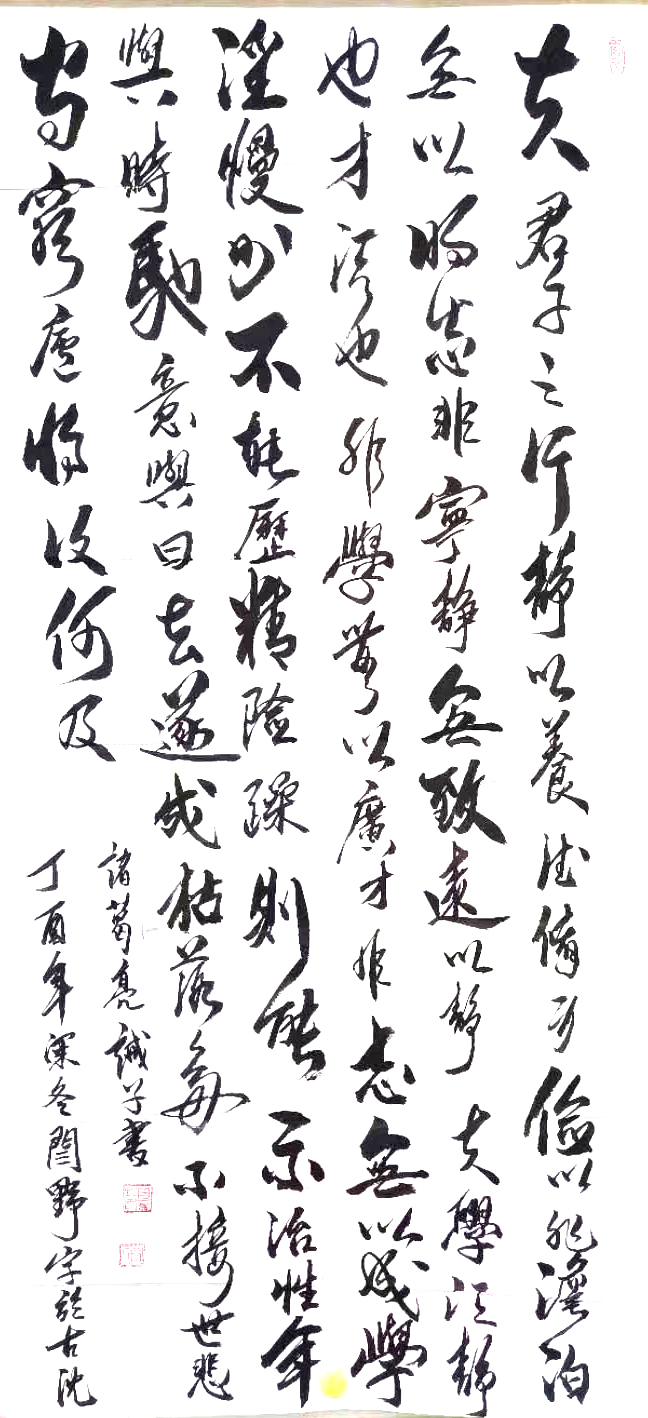 夫君子之行靜以養德脩身儉以非澹泊
無以明志非寧靜無致遠以靜夫學須靜
也才須也非學無以廣才非志無以成學
淫慢則不能歷精險躁則能不治性年
與時馳意與日去遂成枯落多不接世悲
守窮廬將復何及
諸葛亮誡子書
丁酉年深冬閆野字於古沈